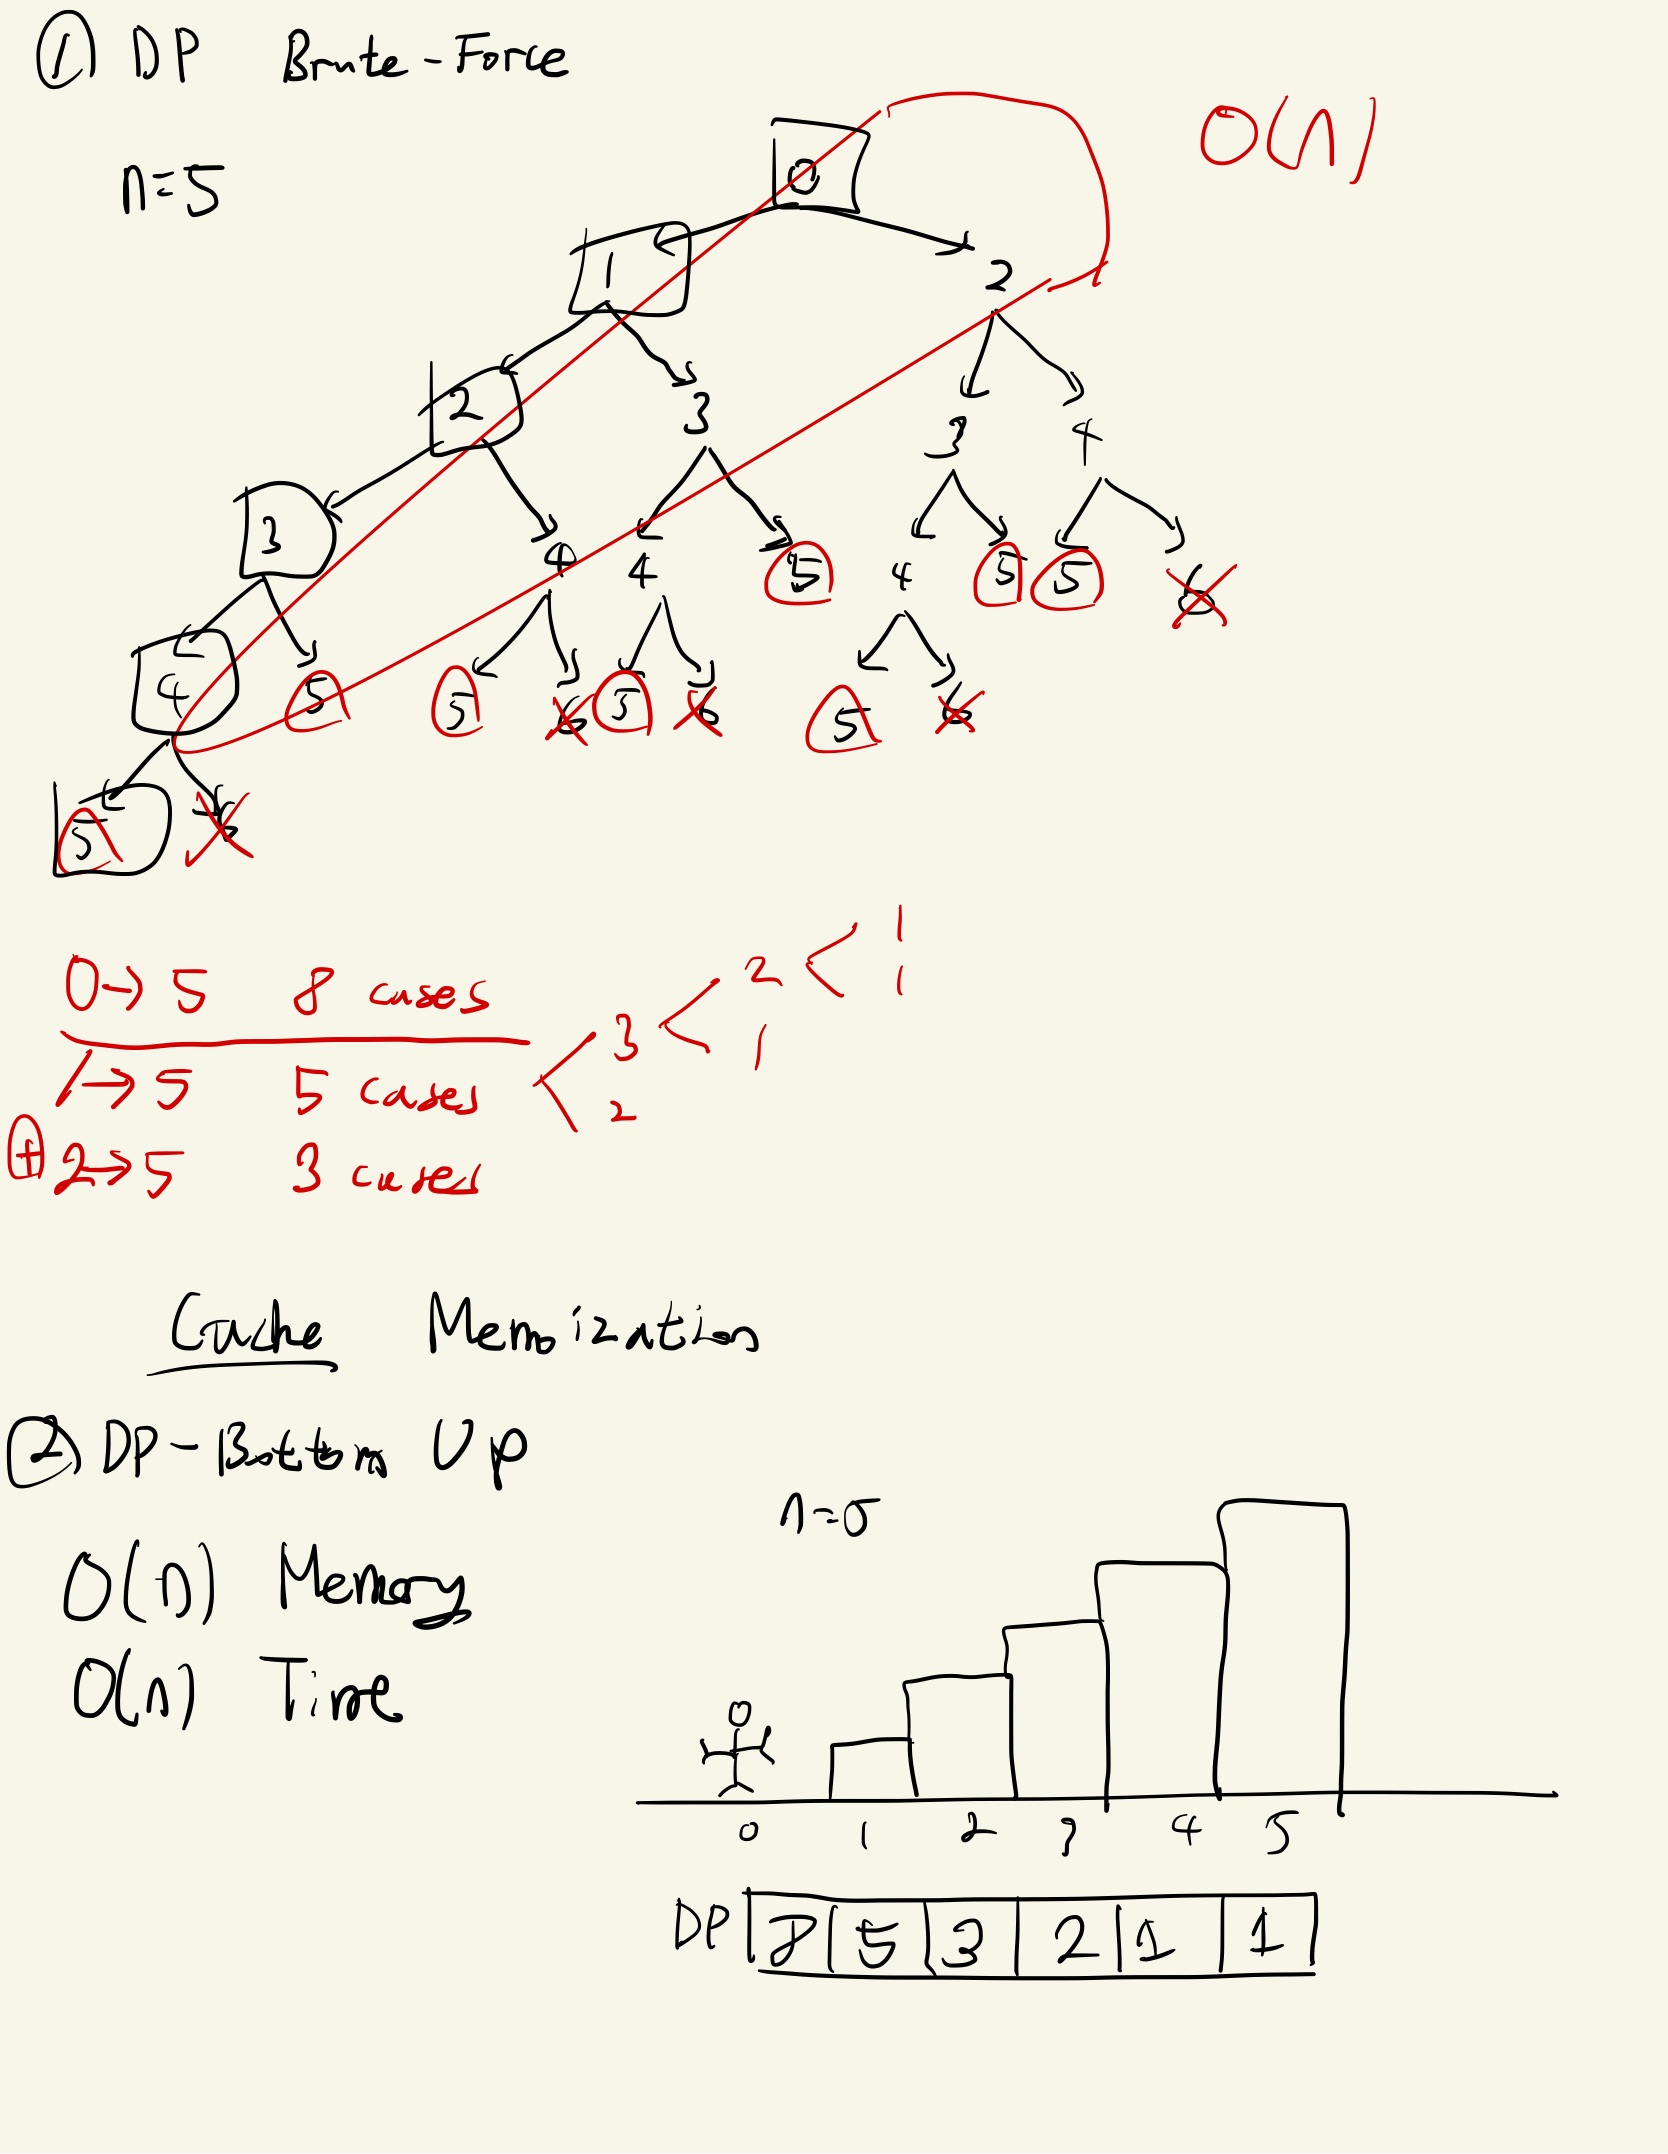 ① DP Brute-Force
O(n)
n=5
0
1 2
2 3 3 4
3 4 4 5 4 5 5 6
4 5 5 6 5 6 5 6
5 6
0→5 8 cases
1→5 5 cases
⊕ 2→5 3 cases
3 2 1
1
1
2
Cache Memoization
② DP-Bottom Up
n=5
O(n) Memory
O(n) Time
0 1 2 3 4 5
DP 8 5 3 2 1 1